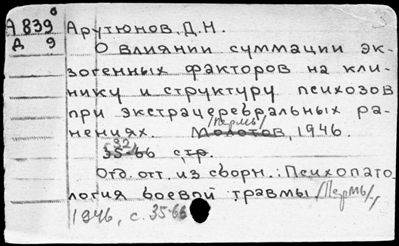 А 839
д 9
Арутюнов, Д.Н.
О влиянии суммации эк-
зогенных факторов на кли-
нику и структуру психозов
при экстрацеребральных ра-
нениях. Молотов, 1946.
/Пермь/
32
35-66 стр.
Отд. отт. из сборн.: Психопато-
логия боевой травмы /Пермь/,
1946, с. 35-66